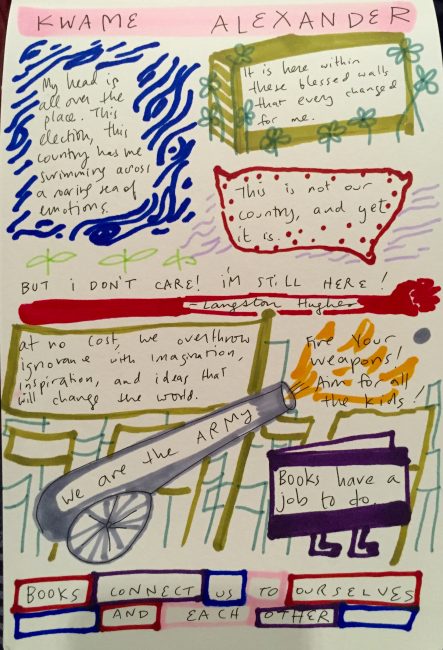 KWAME ALEXANDER
My head is
all over the
place. This
election, this
country has me
swimming across
a roaring sea of
emotions.
It is here within
these blessed walls
that every changed
for me.
This is not our
country, and yet
it is.
BUT i DON'T CARE! i'M STILL HERE!
-Langston Hughes
at no cost, we overthrow
ignorance with Imagination,
inspiration, and ideas that
will change the world.
Fire Your
weapons!
Aim for all
the kids!
We are the ARMY
Books have a
job to do
BOOKS CONNECT US TO OURSELVES
AND EACH OTHER